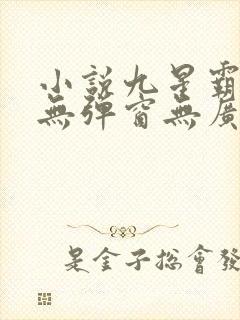 小說九星霸
無彈窗無廣
是金子總會發